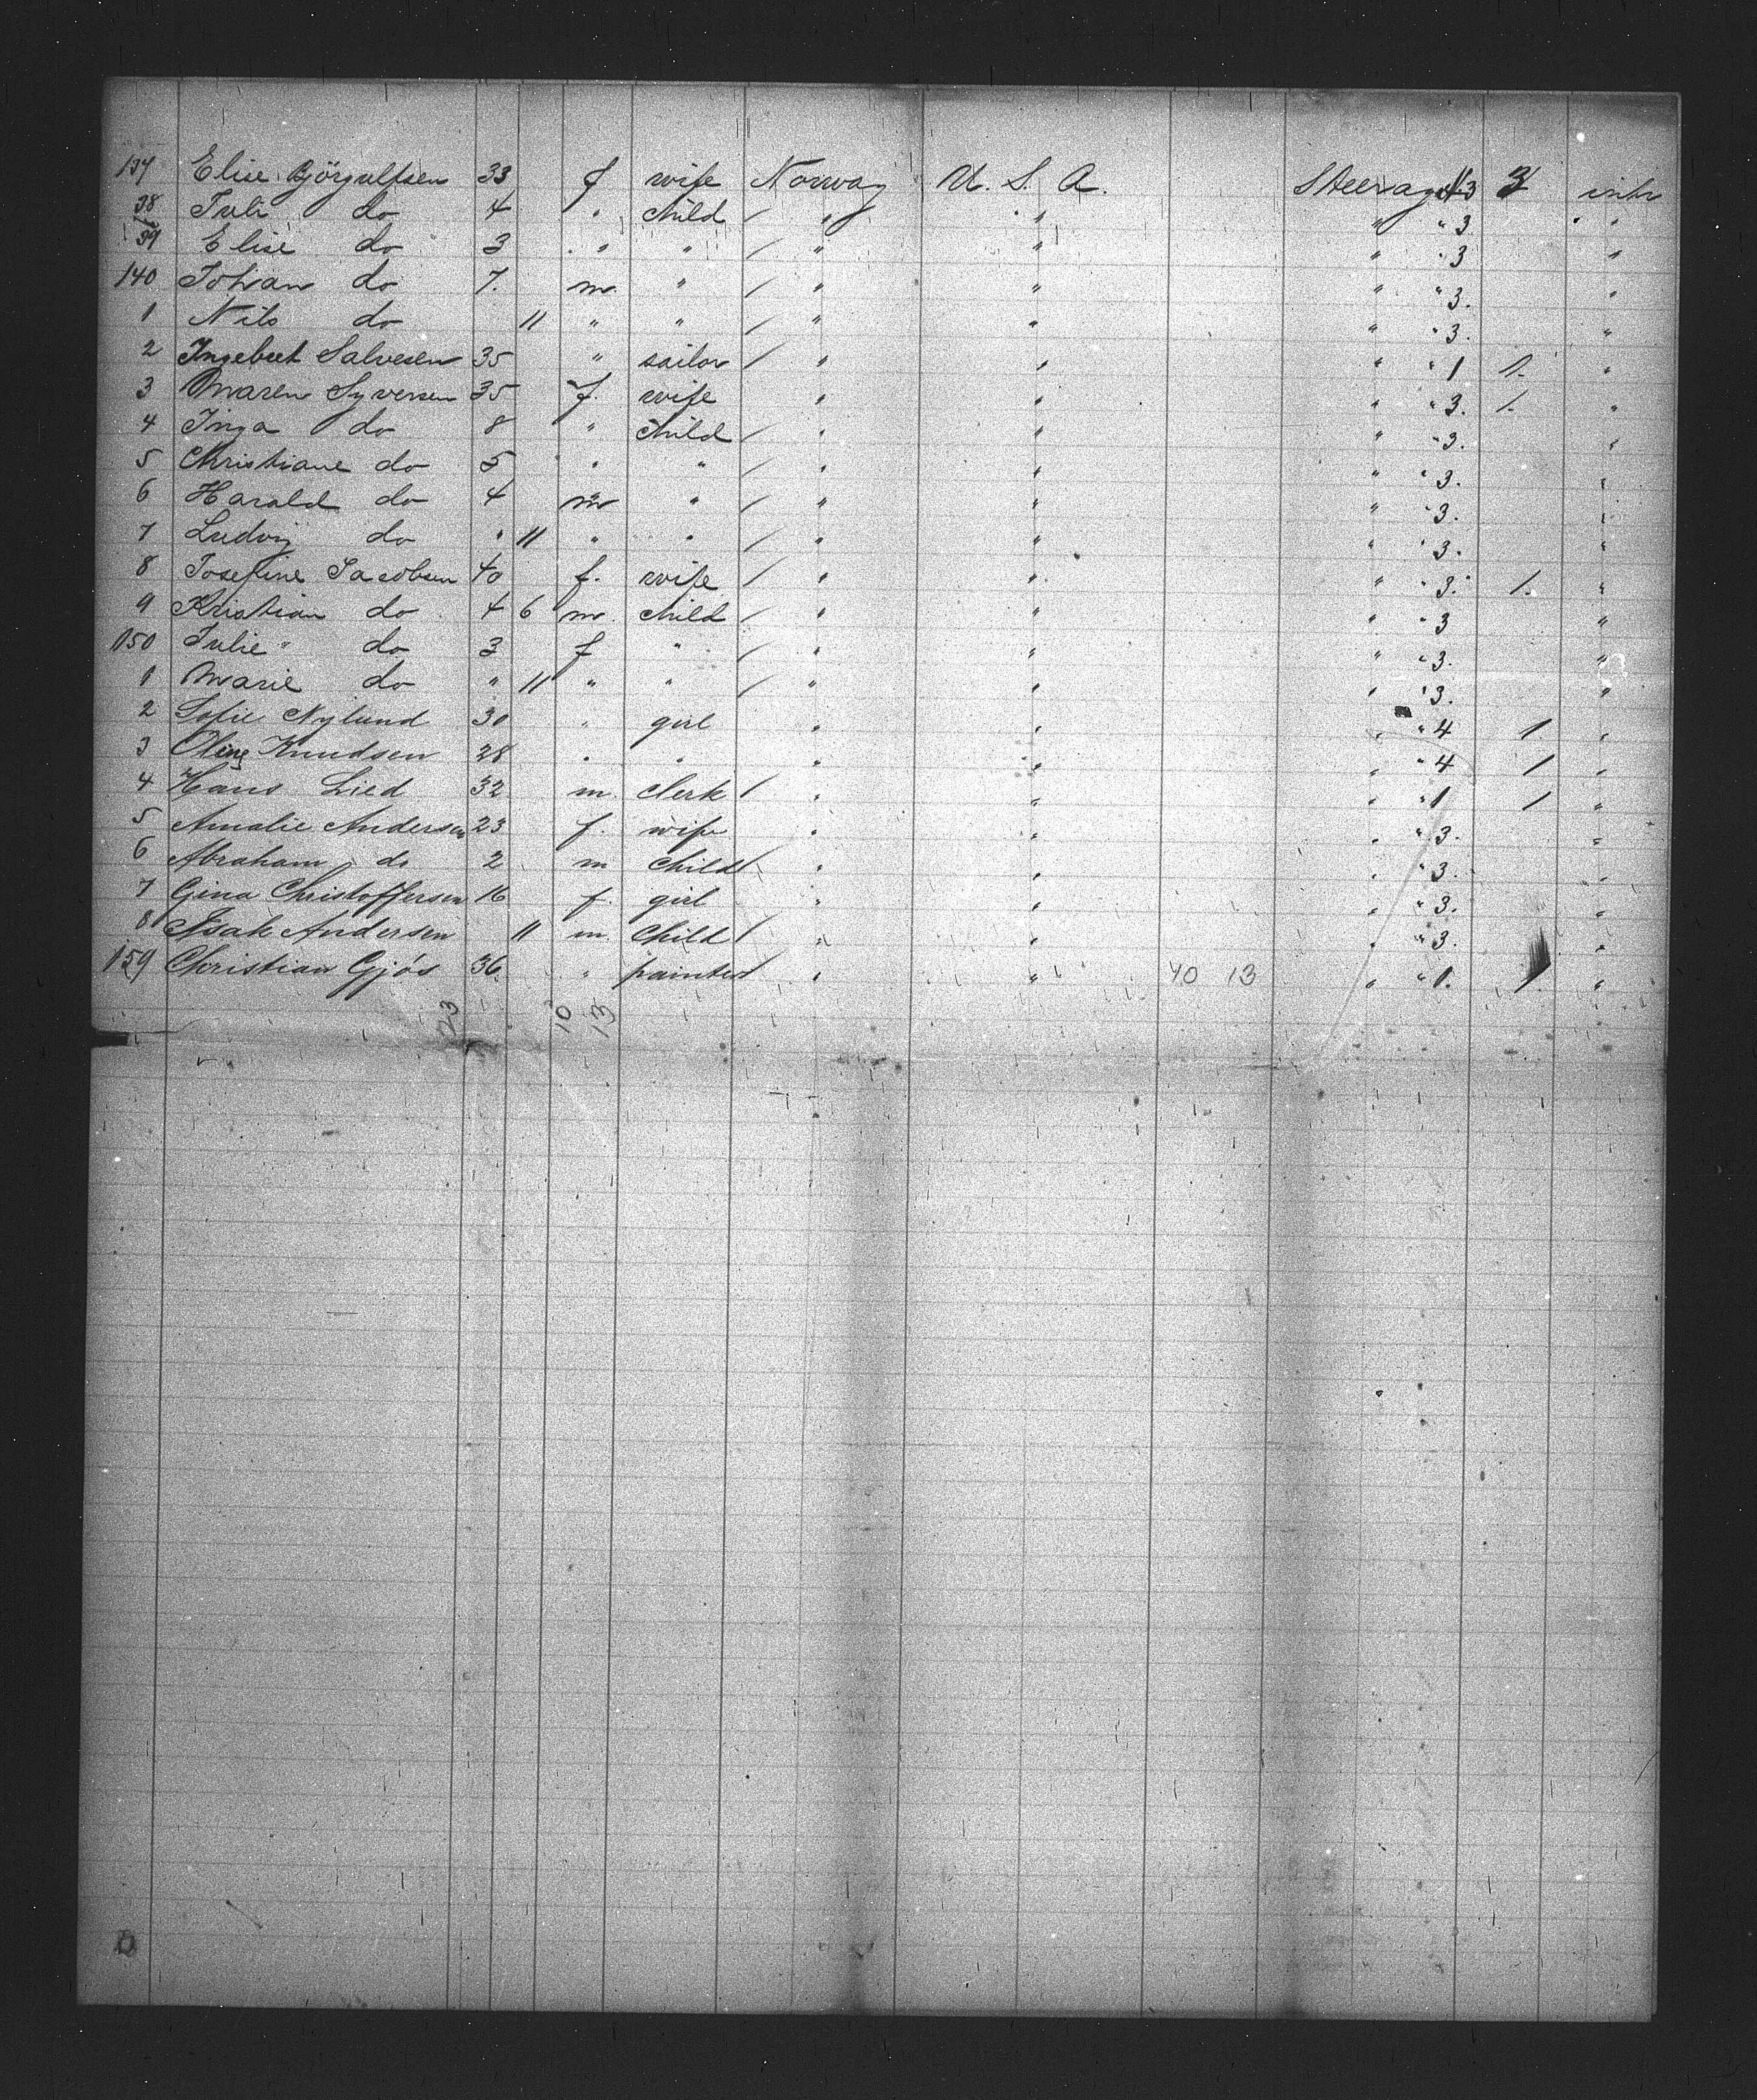 137 Elise Björgulfsen 33 f wife Norway U. S. A. Steerage N3 3 intr
38 Juli do 4 " child / " " " " 3 "
39 Elise do 3 " " / " " " " 3 "
140 Johan do 7. m. " / " " " " 3. "
1 Nils do 11 " " / " " " " 3. "
2 Ingebret Salvesen 35 " sailor / " " " " 1 1. "
3 Maren Syversen 35 f. wife " " " " 3. 1. "
4 Inga do 8 " child / " " " " 3. "
5 Christiane do 5 " " / " " " " 3. "
6 Harald do 4 m " / " " " " 3. "
7 Ludvig do " 11 " " / " " " " 3. "
8 Josefine Jacobsen 40 f. wife / " " " " 3. 1. "
9 Kristian do 4 6 m. child / " " " " 3 "
150 Julie do 3 f " / " " " " 3. "
1 Marie do " 11 " " / " " " " 3. "
2 Sofie Nylund 30 " girl " " " " 4 1 "
3 Oline Knudsen 28 " " " " " " 4 1 "
4 Hans Lied 32 m. clerk / " " " " 1 1 "
5 Amalie Andersen 23 f. wife " " " " 3. "
6 Abraham do 2 m child / " " " " 3. "
7 Gina Christoffersen 16 f. girl " " " " 3. "
8 Isak Andersen 11 m. child / " " " " 3. "
159 Christian Gjös 36. " painter / " " 40 13 " " 1. 1 "
23 10 13